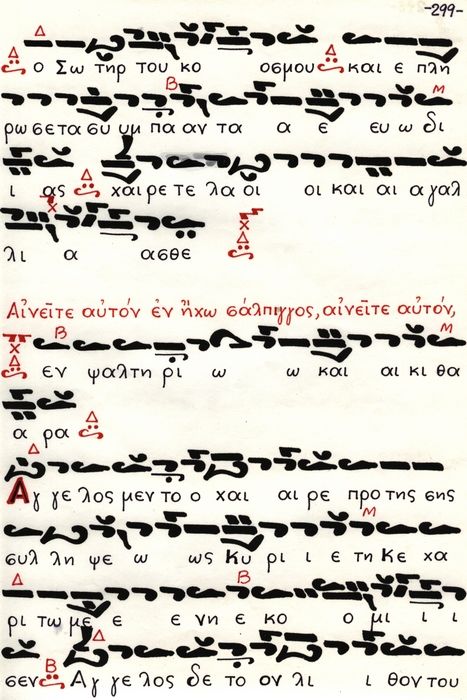 -299-
ο Σω τηρ του κο οσμου και ε πλη
ρω σε τα συ υμ πα αν τα α ε ευ ω δι
ι ας χαι ρε τε λα οι οι και αι α γαλ
λι α ασθε
Αἰνεῖτε αὐτόν ἐν ἤχω σάλπιγγος, αἰνεῖτε αὐτόν,
εν ψαλτη ρι ω ω και αι κι θα
α ρα
Αγ γε λος μεν το ο χαι αι ρε προ της σης
συλ λη ψε ω ως Κυ ρι ι ε τη Κε χα
ρι τω με ε ε νη ε κο ο μι ι ι
σεν Αγ γε λος δε το ον λι ι θον του